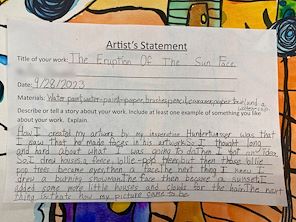 Artist's Statement
Title of your work: The Eruption Of The Sun Face
Date: 9/28/2023
Materials: Water paint, water-paint-paper, brushes, pencil, paper and a
Describe or tell a story about your work. Include at least one example of something you like
about your work. Explain.
How I created my artwork by my inventive Hundertwasser was that
I saw that he made faces in his artwork. So I thought long
and hard about what I was going to do then I got an idea.
So, I drew houses, a fence, lillie-pop trees, but then those lillie
pop trees became eyes then a face. The next thing I knew I
drew a burning chowman face then became a sunset. I
added some more little houses and clouds for the hair. The next
thing is that's how my picture came to be.